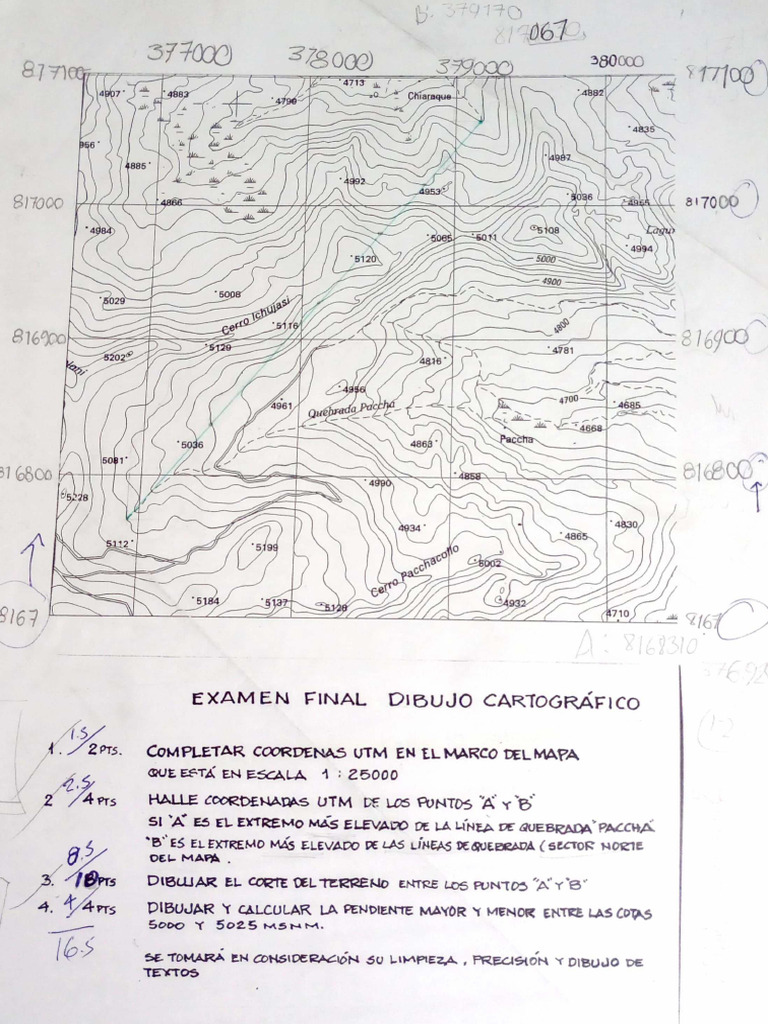 B: 379170
377000
378000
379000
380000
817100
817100
4907
4883
4713
4790
Chiaraque
4882
4835
956
4885
4987
4992
4953
5036
4866
817000
4955
817000
4984
5065
5011
5108
Lagun
4994
5120
5000
4900
5029
5008
Cerro Ichujasi
5116
4800
816900
5202
5129
4816
4781
816900
4956
4961
Quebrada Paccha
4700
4685
4668
Paccha
5036
4863
5081
816800
4990
4858
816800
5228
4934
4830
4865
5112
5199
Cerro Pacchacollo
5002
5184
5137
5128
4932
4710
8167
8167
A: 8168310
EXAMEN FINAL DIBUJO CARTOGRÁFICO
1. 1.5/2PTS. COMPLETAR COORDENAS UTM EN EL MARCO DEL MAPA
QUE ESTÁ EN ESCALA 1 : 25000
2 2.5/4PTS HALLE COORDENADAS UTM DE LOS PUNTOS "A" Y "B"
SI "A" ES EL EXTREMO MÁS ELEVADO DE LA LÍNEA DE QUEBRADA PACCHÁ
"B" ES EL EXTREMO MÁS ELEVADO DE LAS LÍNEAS DE QUEBRADA (SECTOR NORTE
DEL MAPA.
3. 8.5/10PTS DIBUJAR EL CORTE DEL TERRENO ENTRE LOS PUNTOS "A" Y "B"
4. 4/4PTS DIBUJAR Y CALCULAR LA PENDIENTE MAYOR Y MENOR ENTRE LAS COTAS
5000 Y 5025 MSNM.
16.5
SE TOMARÁ EN CONSIDERACIÓN SU LIMPIEZA, PRECISIÓN Y DIBUJO DE
TEXTOS